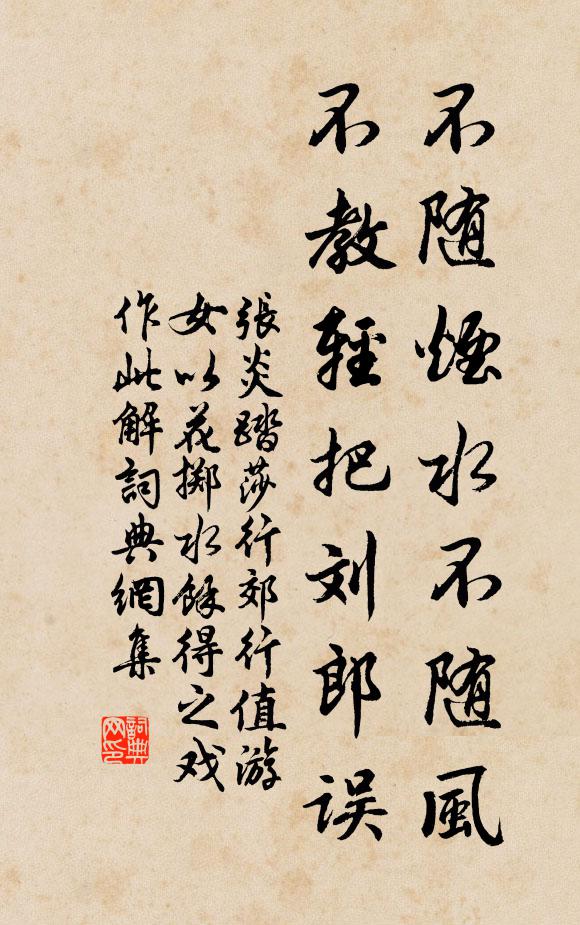 不随煙水不随風
不教輕把刘郎误
張炎踏莎行郊行值游
女以花掷水餘得之戏
作此解詞典網集
詞典
网印